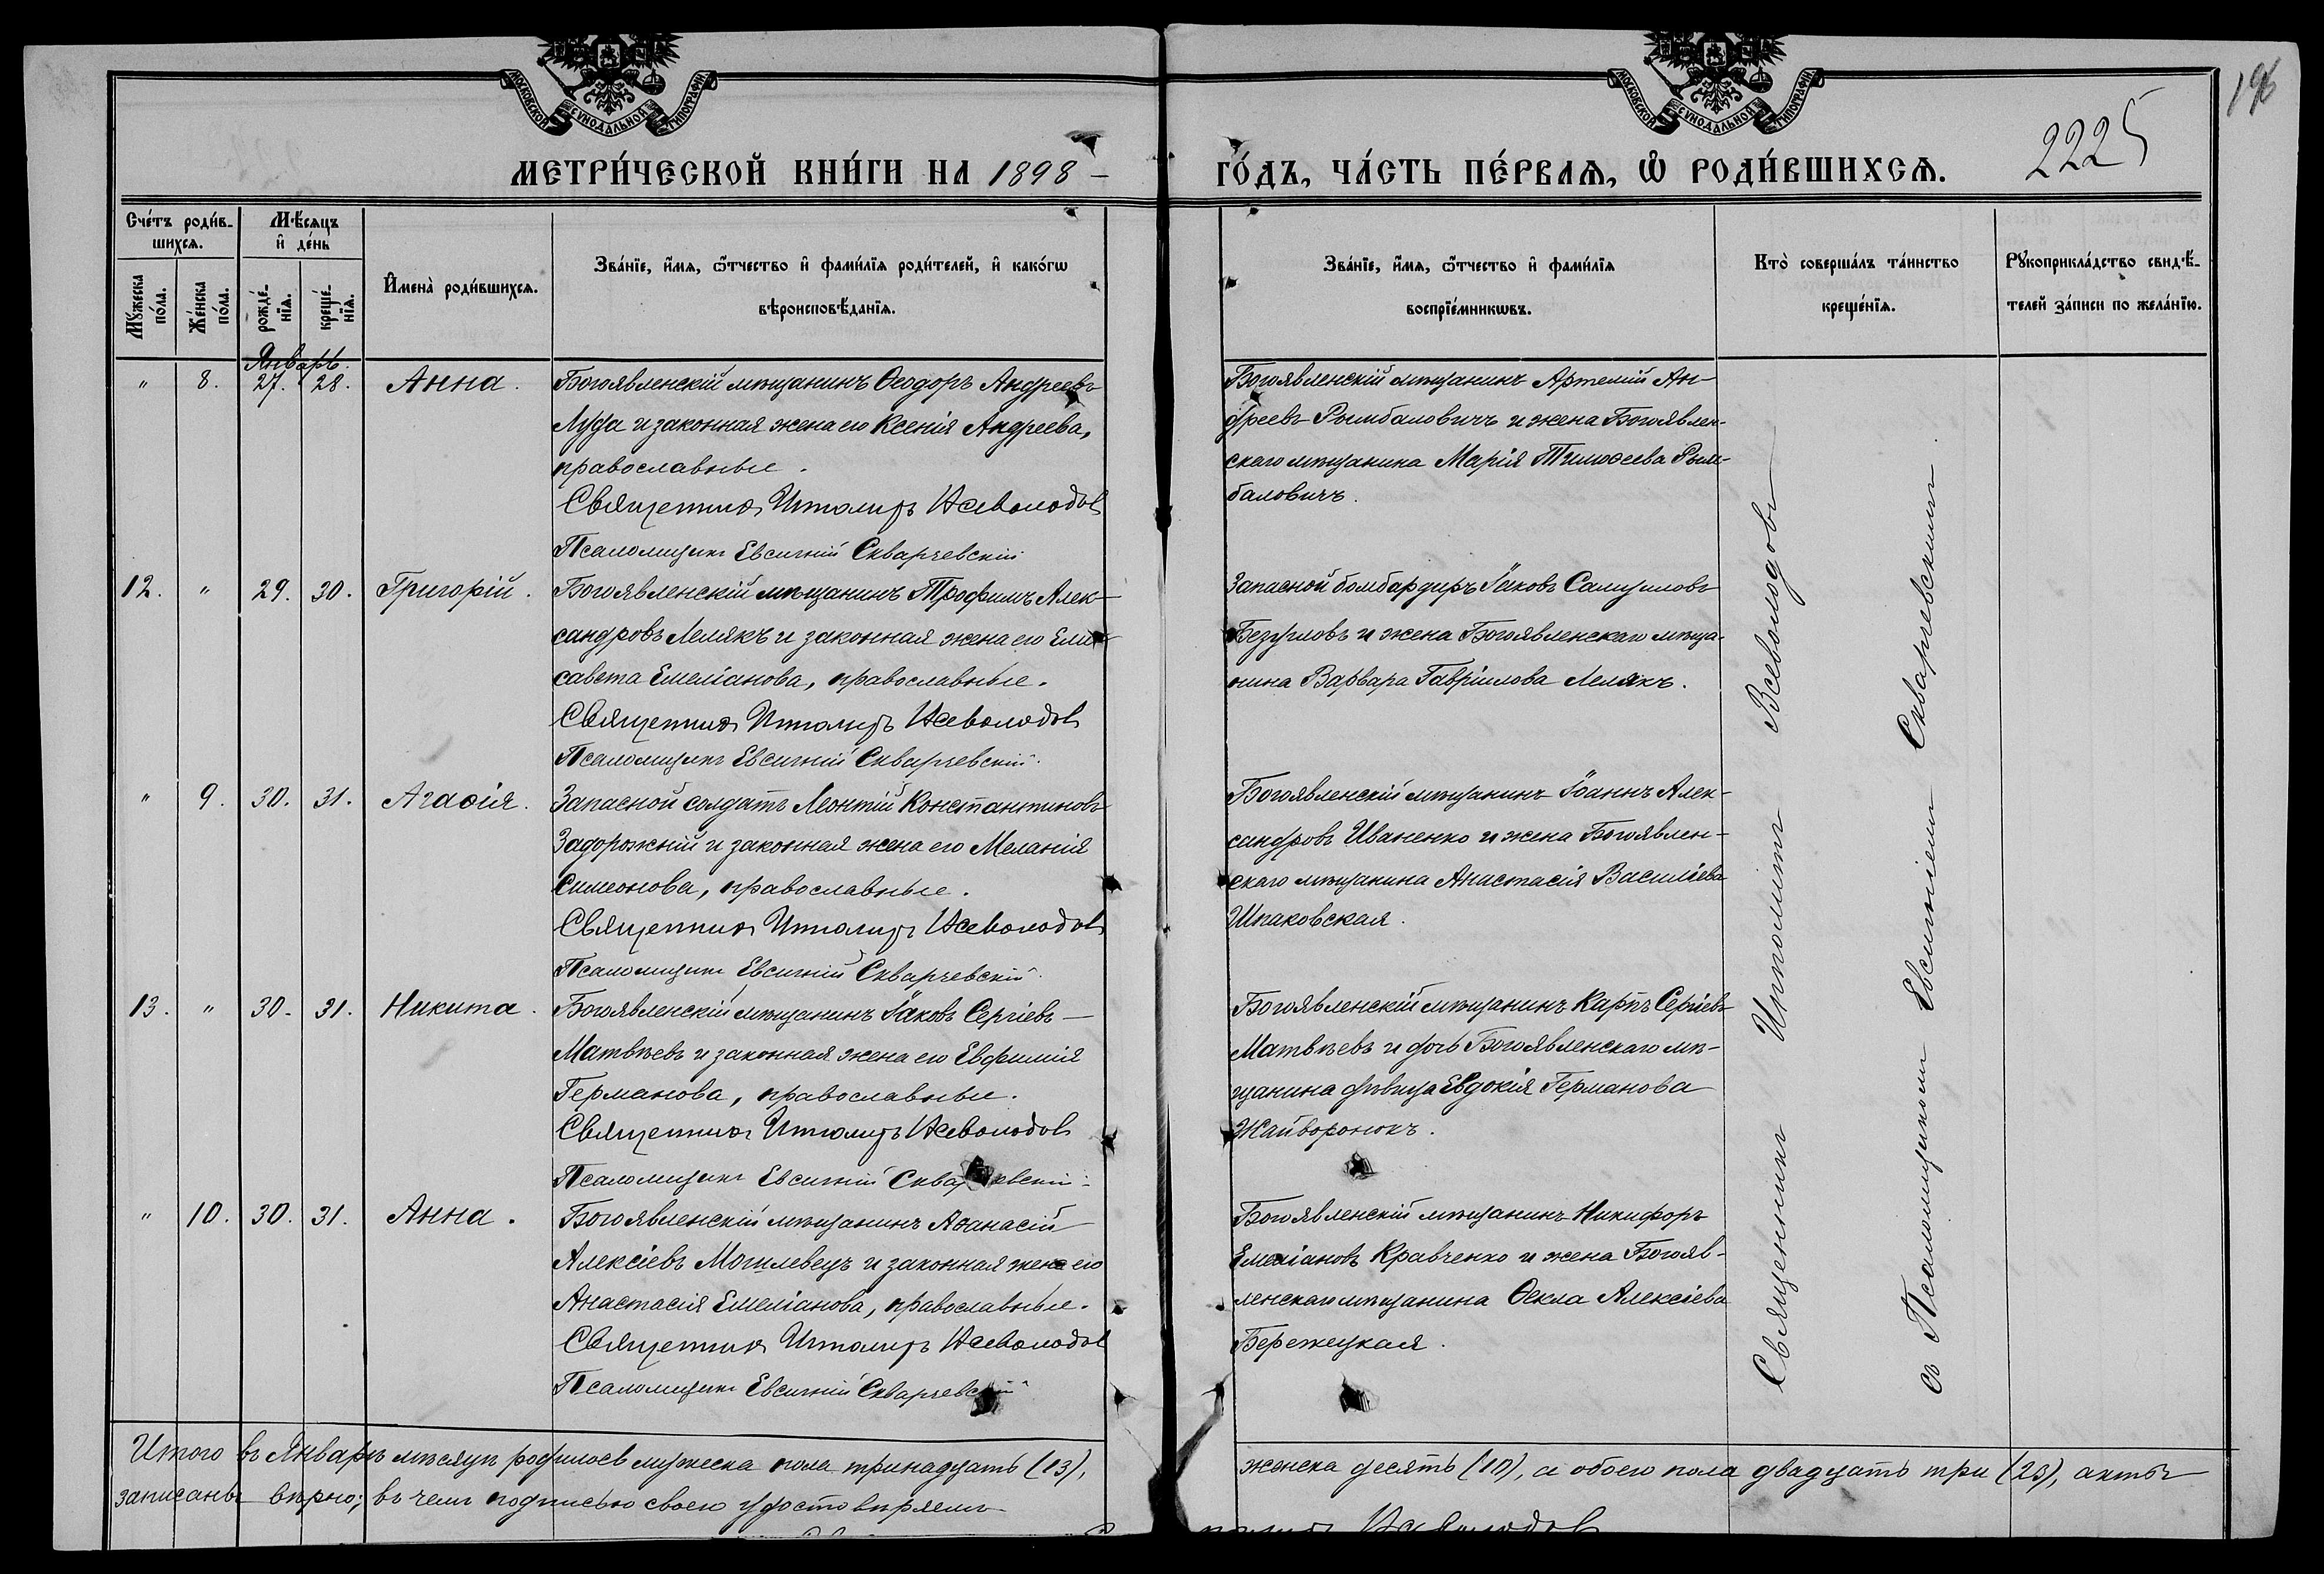 МОСКОВСКОЙ СѴНОДАЛЬНОЙ ТИПОГРАФІИ
МОСКОВСКОЙ СѴНОДАЛЬНОЙ ТИПОГРАФІИ
196
2225
МЕТРИ́ЧЕСКОЙ КНИ́ГИ НА 1898 –
ГО́ДЪ, ЧА́СТЬ ПЕ́РВАѦ, Ѡ҆ РОДИ́ВШИХСѦ.
Сче́тъ роди́в-
шихсѧ.
Мꙋ́жеска по́ла.
Же́нска по́ла.
Мѣ́сѧцъ
и҆ де́нь
рожде́-
нїѧ.
креще́-
нїѧ.
И҆мена̀ роди́вшихсѧ.
Зва́нїе, и҆́мѧ, ѻ҆́тчество и҆ фами́лїѧ роди́телей, и҆ како́гѡ
вѣроисповѣ́данїѧ.
Зва́нїе, и҆́мѧ, ѻ҆́тчество и҆ фами́лїѧ
воспрїе́мникѡвъ.
Кто̀ соверша́лъ та́инство
креще́нїѧ.
Рꙋкоприкла́дство свидѣ́-
телей за́писи по жела́нїю.
Январь.
" 8. 27. 28. Анна.
Богоявленскій мѣщанинъ Ѳеодоръ Андреевъ
Луда и законная жена его Ксенія Андреева,
православные.
Священникъ Ипполитъ Всеволодовъ
Псаломщикъ Евсигній Скварчевскій
Богоявленскій мѣщанинъ Артемій Ан-
дреевъ Рымбаловичъ и жена Богоявлен-
скаго мѣщанина Марія Тимоѳеева Рым-
баловичъ.
12. " 29. 30. Григорій.
Богоявленскій мѣщанинъ Трофимъ Алек-
сандровъ Лелякъ и законная жена его Ели-
савета Емеліанова, православные.
Священникъ Ипполитъ Всеволодовъ
Псаломщикъ Евсигній Скварчевскій.
Запасной бомбардиръ Іаковъ Самуиловъ
Безугловъ и жена Богоявленскаго мѣща-
нина Варвара Гавріилова Лелякъ.
" 9. 30. 31. Агаѳія.
Запасной солдатъ Леонтій Константиновъ
Задорожній и законная жена его Меланія
Симеонова, православные.
Священникъ Ипполитъ Всеволодовъ
Псаломщикъ Евсигній Скварчевскій.
Богоявленскій мѣщанинъ Іоаннъ Алек-
сандровъ Иваненко и жена Богоявлен-
скаго мѣщанина Анастасія Василіева
Шпаковская.
13. " 30. 31. Никита.
Богоявленскій мѣщанинъ Іаковъ Сергіевъ
Матвѣевъ и законная жена его Евфимія
Германова, православные.
Священникъ Ипполитъ Всеволодовъ
Псаломщикъ Евсигній Скварчевскій.
Богоявленскій мѣщанинъ Карпъ Сергіевъ
Матвѣевъ и дочь Богоявленскаго мѣ-
щанина дѣвица Евдокія Германова
Жайворонокъ.
" 10. 30. 31. Анна.
Богоявленскій мѣщанинъ Аѳанасій
Алексіевъ Могилевецъ и законная жена его
Анастасія Емеліанова, православные.
Священникъ Ипполитъ Всеволодовъ
Псаломщикъ Евсигній Скварчевскій
Богоявленскій мѣщанинъ Никифоръ
Емеліановъ Кравченко и жена Богояв-
ленскаго мѣщанина Ѳекла Алексіева
Бережецкая.
Священникъ Ипполитъ Всеволодовъ
съ Псаломщикомъ Евсигніемъ Скварчевскимъ
Итого въ Январѣ мѣсяцѣ родилось мужеска пола тринадцать (13),
женска десять (10), а обоего пола двадцать три (23), акты
записаны вѣрно; въ чемъ подписью своею удостовѣряемъ
Всеволодовъ